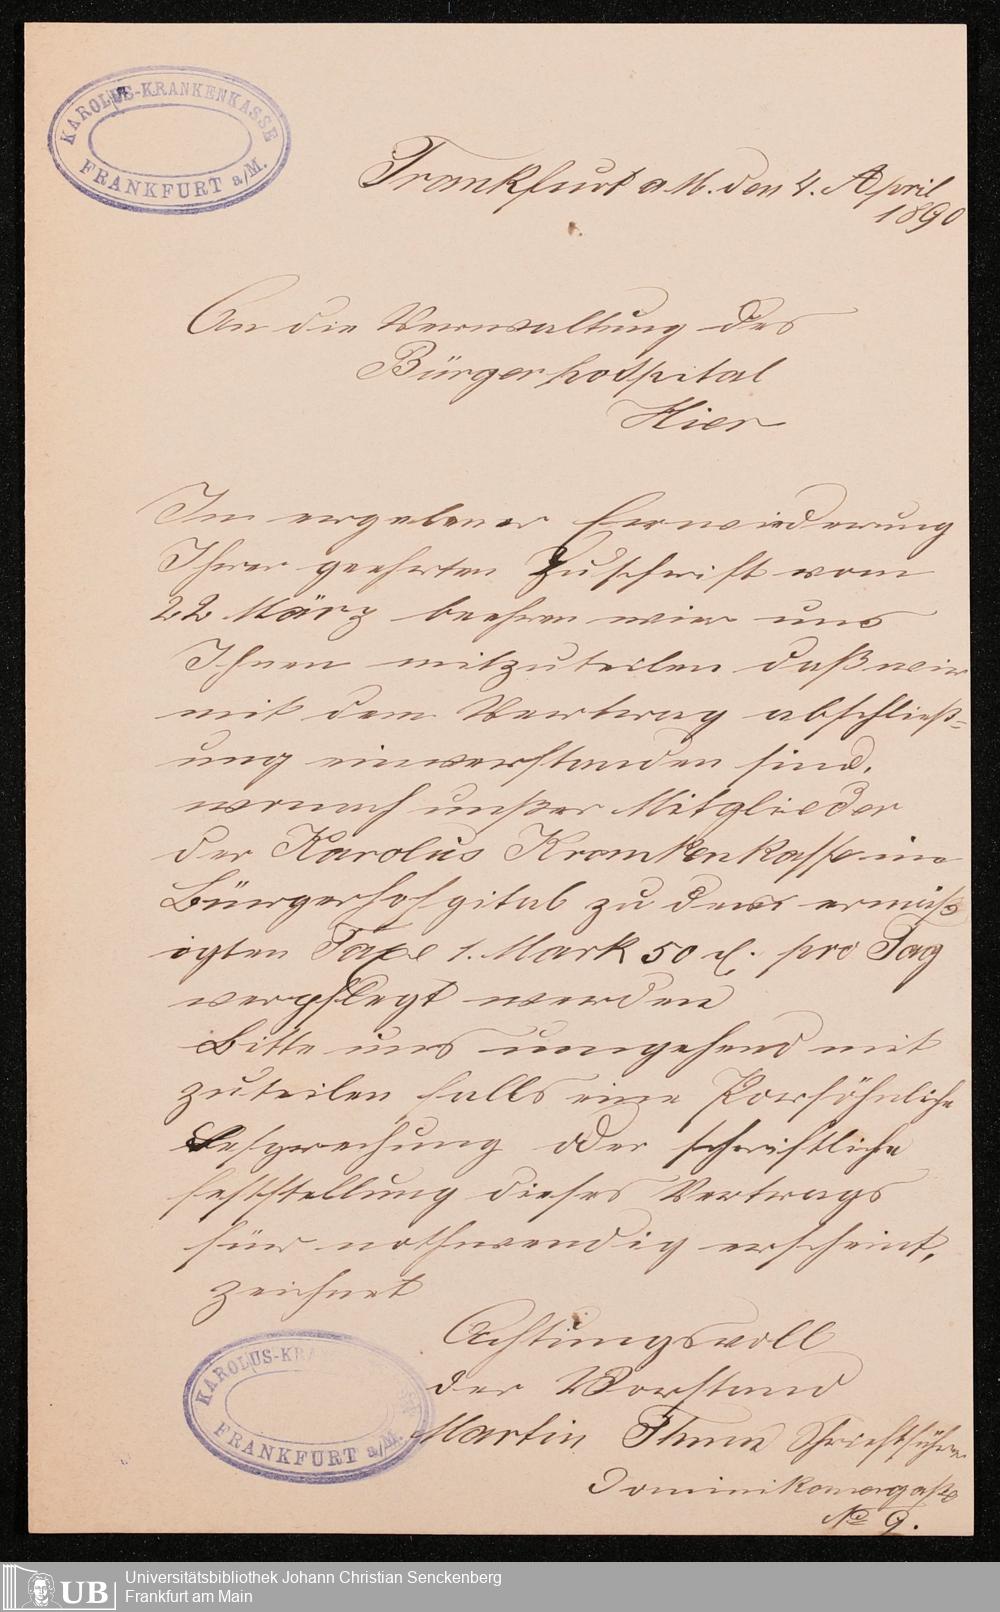 KAROLUS-KRANKENKASSE
FRANKFURT a/M.
Frankfurt a M. den 4. April
1890
An die Verwaltung des
Bürgerhospital
Hier
In ergebener Eerwiederung
Ihrer geehrten Zuschrift vom
22 März beehren wier uns
Ihnen mitzuteilen daß wir
mit dem Vertrag abschließ=
ung einverstanden sind.
wonach unßer Mitglieder
der Karolus Krankenkasse im
Bürgerhospital zu dem ermäß
igten Taxe 1. Mark 50 d. pro Tag
verpflegt werden
Bitte uns umgehend mit
zuteilen falls eine Persöhnliche
Besprechung oder schriftliche
feststellung dieses Vertrags
für nothwendig erscheint,
zeichnet
Achtungsvoll
der Vorstand
Martin Schriftführer
Dominikanergasse
No 9.
KAROLUS-KRA
FRANKFURT a/M.
UB
Universitätsbibliothek Johann Christian Senckenberg
Frankfurt am Main